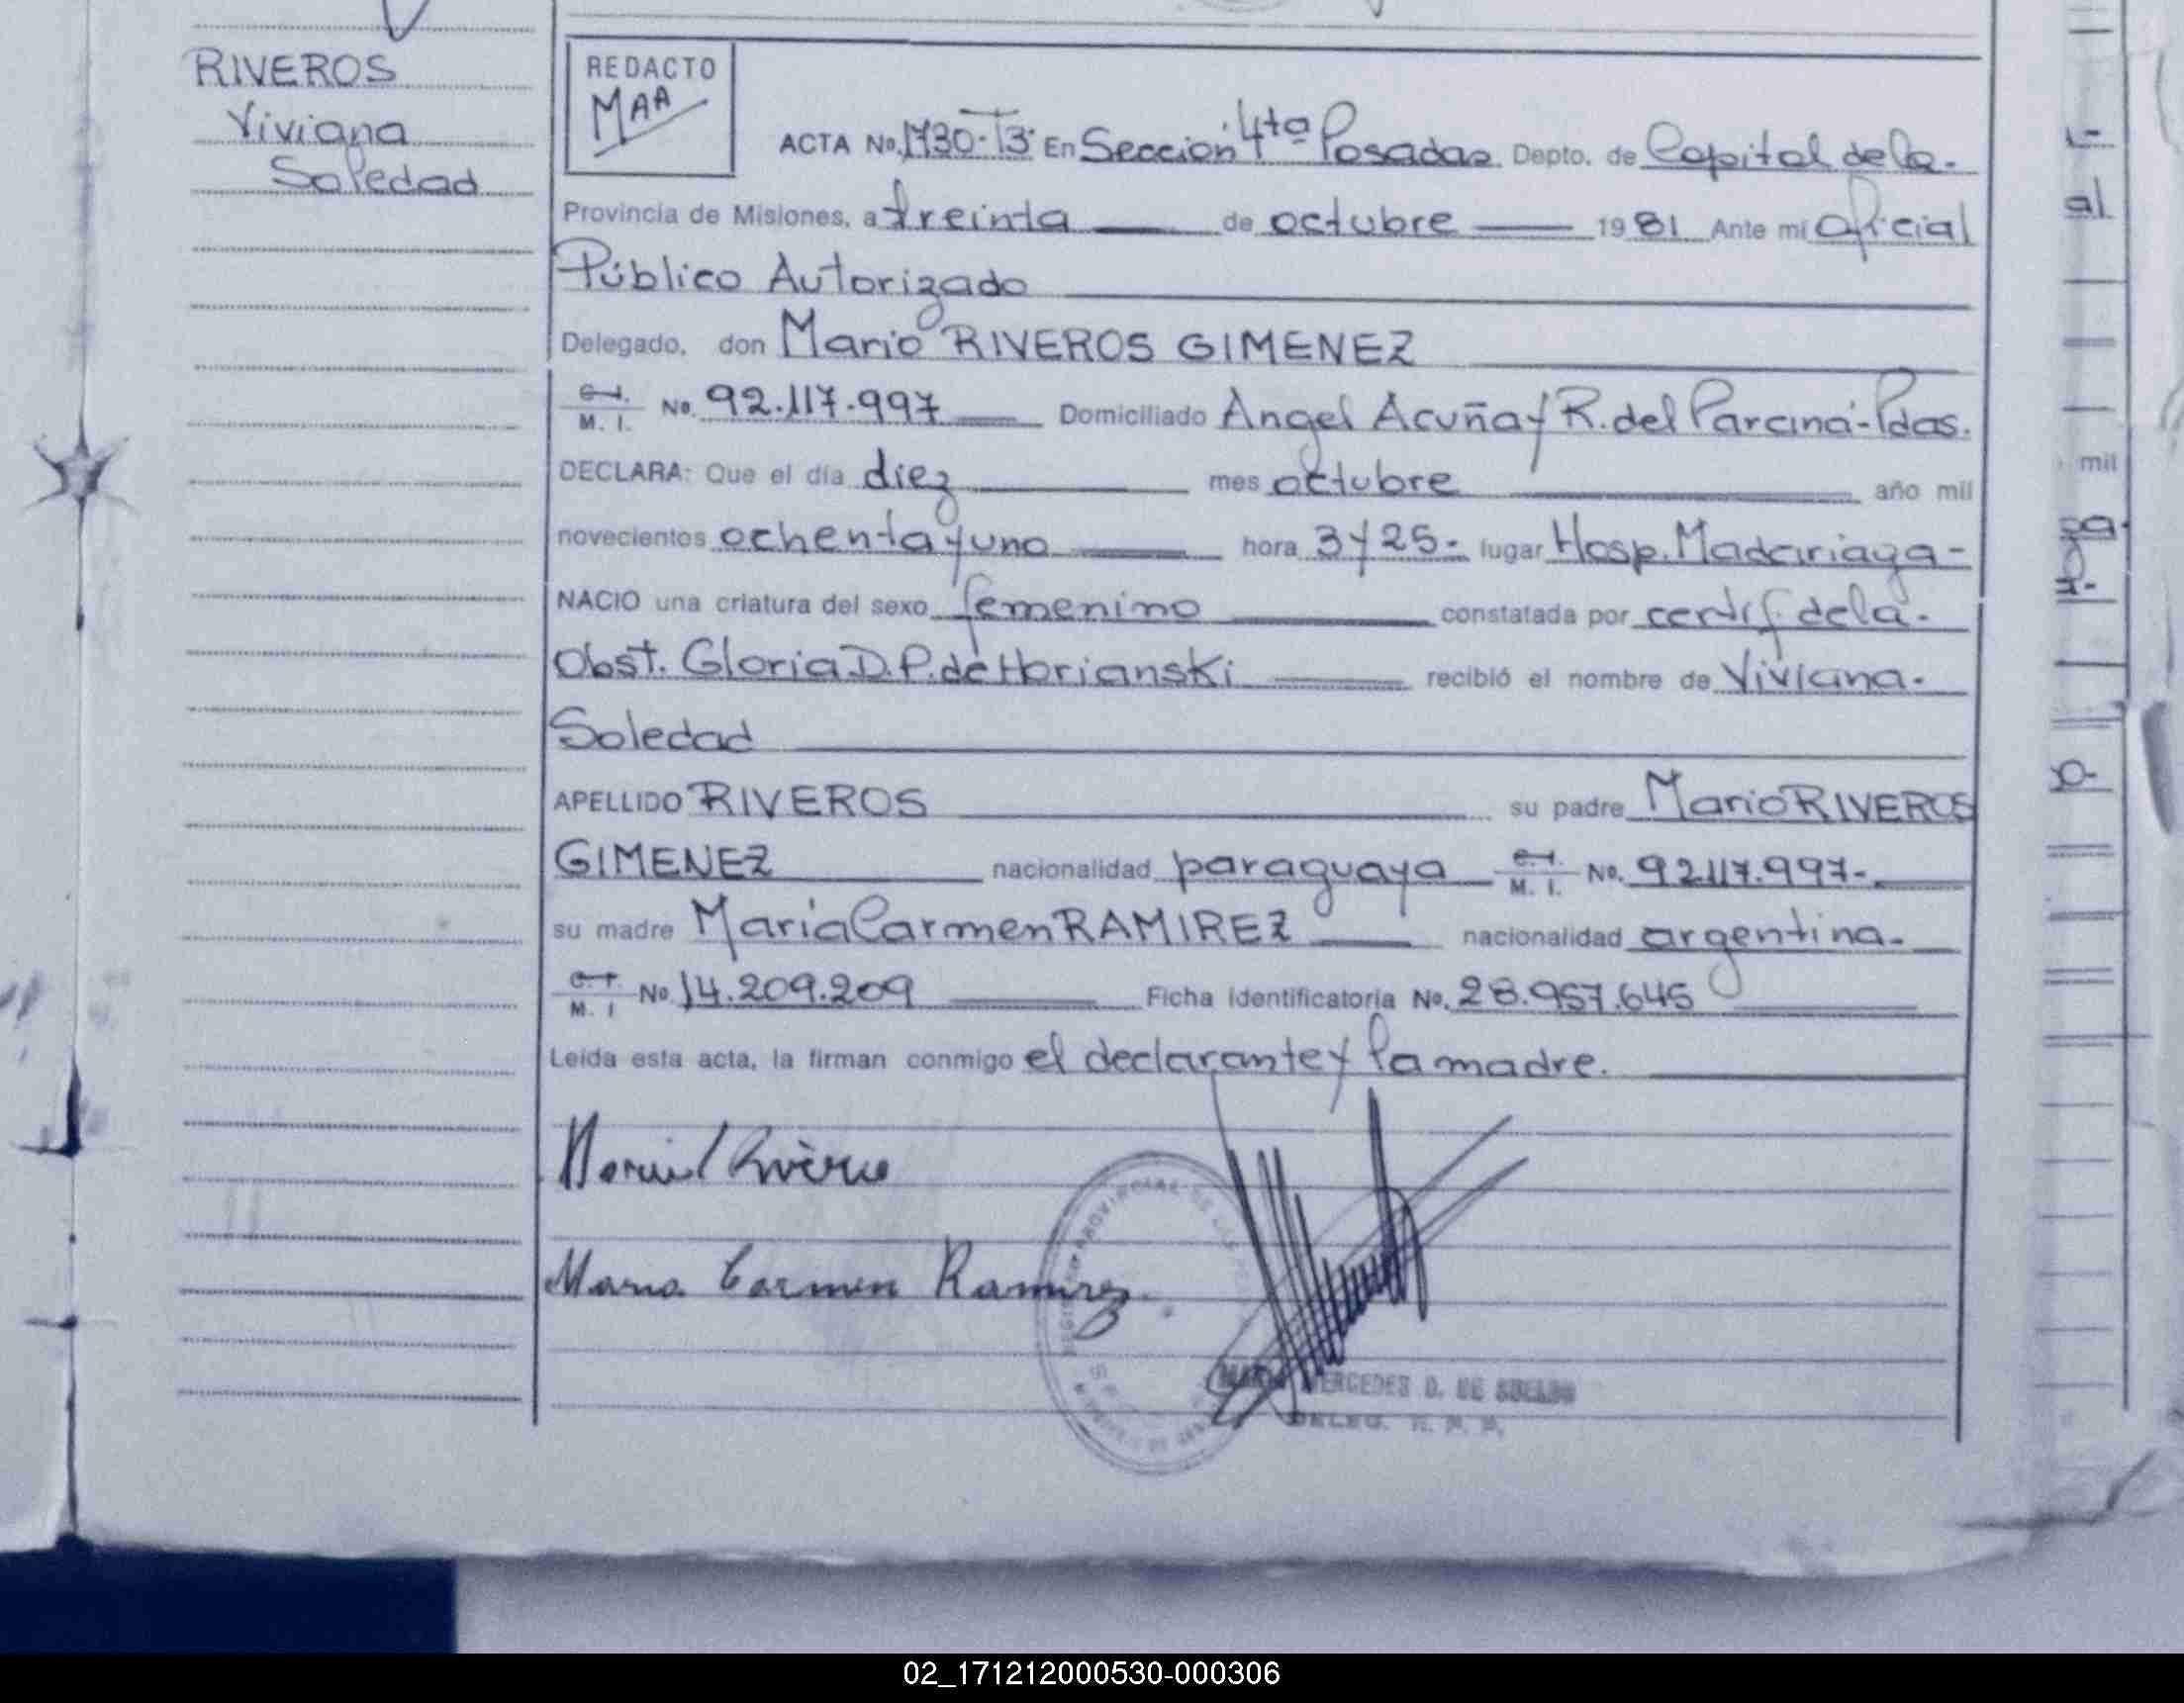 RIVEROS
Viviana
Soledad
REDACTO
MAA
ACTA No. 1730-T3- En Sección 4ta Posadas Depto. de Capital de la-
Provincia de Misiones, a treinta de octubre 1981 Ante mi Oficial
Público Autorizado
Delegado, don Mario RIVEROS GIMENEZ
C.I. M. I. No. 92.117.997 Domiciliado Angel Acuña y R. del Parcaná-Pdas.
DECLARA: Que el día diez mes octubre año mil
novecientos ochenta y uno hora 3 y 25- lugar Hosp. Madariaga-
NACIO una criatura del sexo femenino constatada por certif. de la-
Obst. Gloria D. P. de Horianski recibió el nombre de Viviana-
Soledad
APELLIDO RIVEROS su padre Mario RIVEROS
GIMENEZ nacionalidad paraguaya C.I. M. I. No. 92.117.997-
su madre María Carmen RAMIREZ nacionalidad argentina-
C.I. M. I No. 14.209.209 Ficha Identificatoria No. 28.957.645
Leída esta acta, la firman conmigo el declarante y la madre.
Maria Carmen Ramirez
MERCEDES D. DE
al
mil
02_171212000530-000306